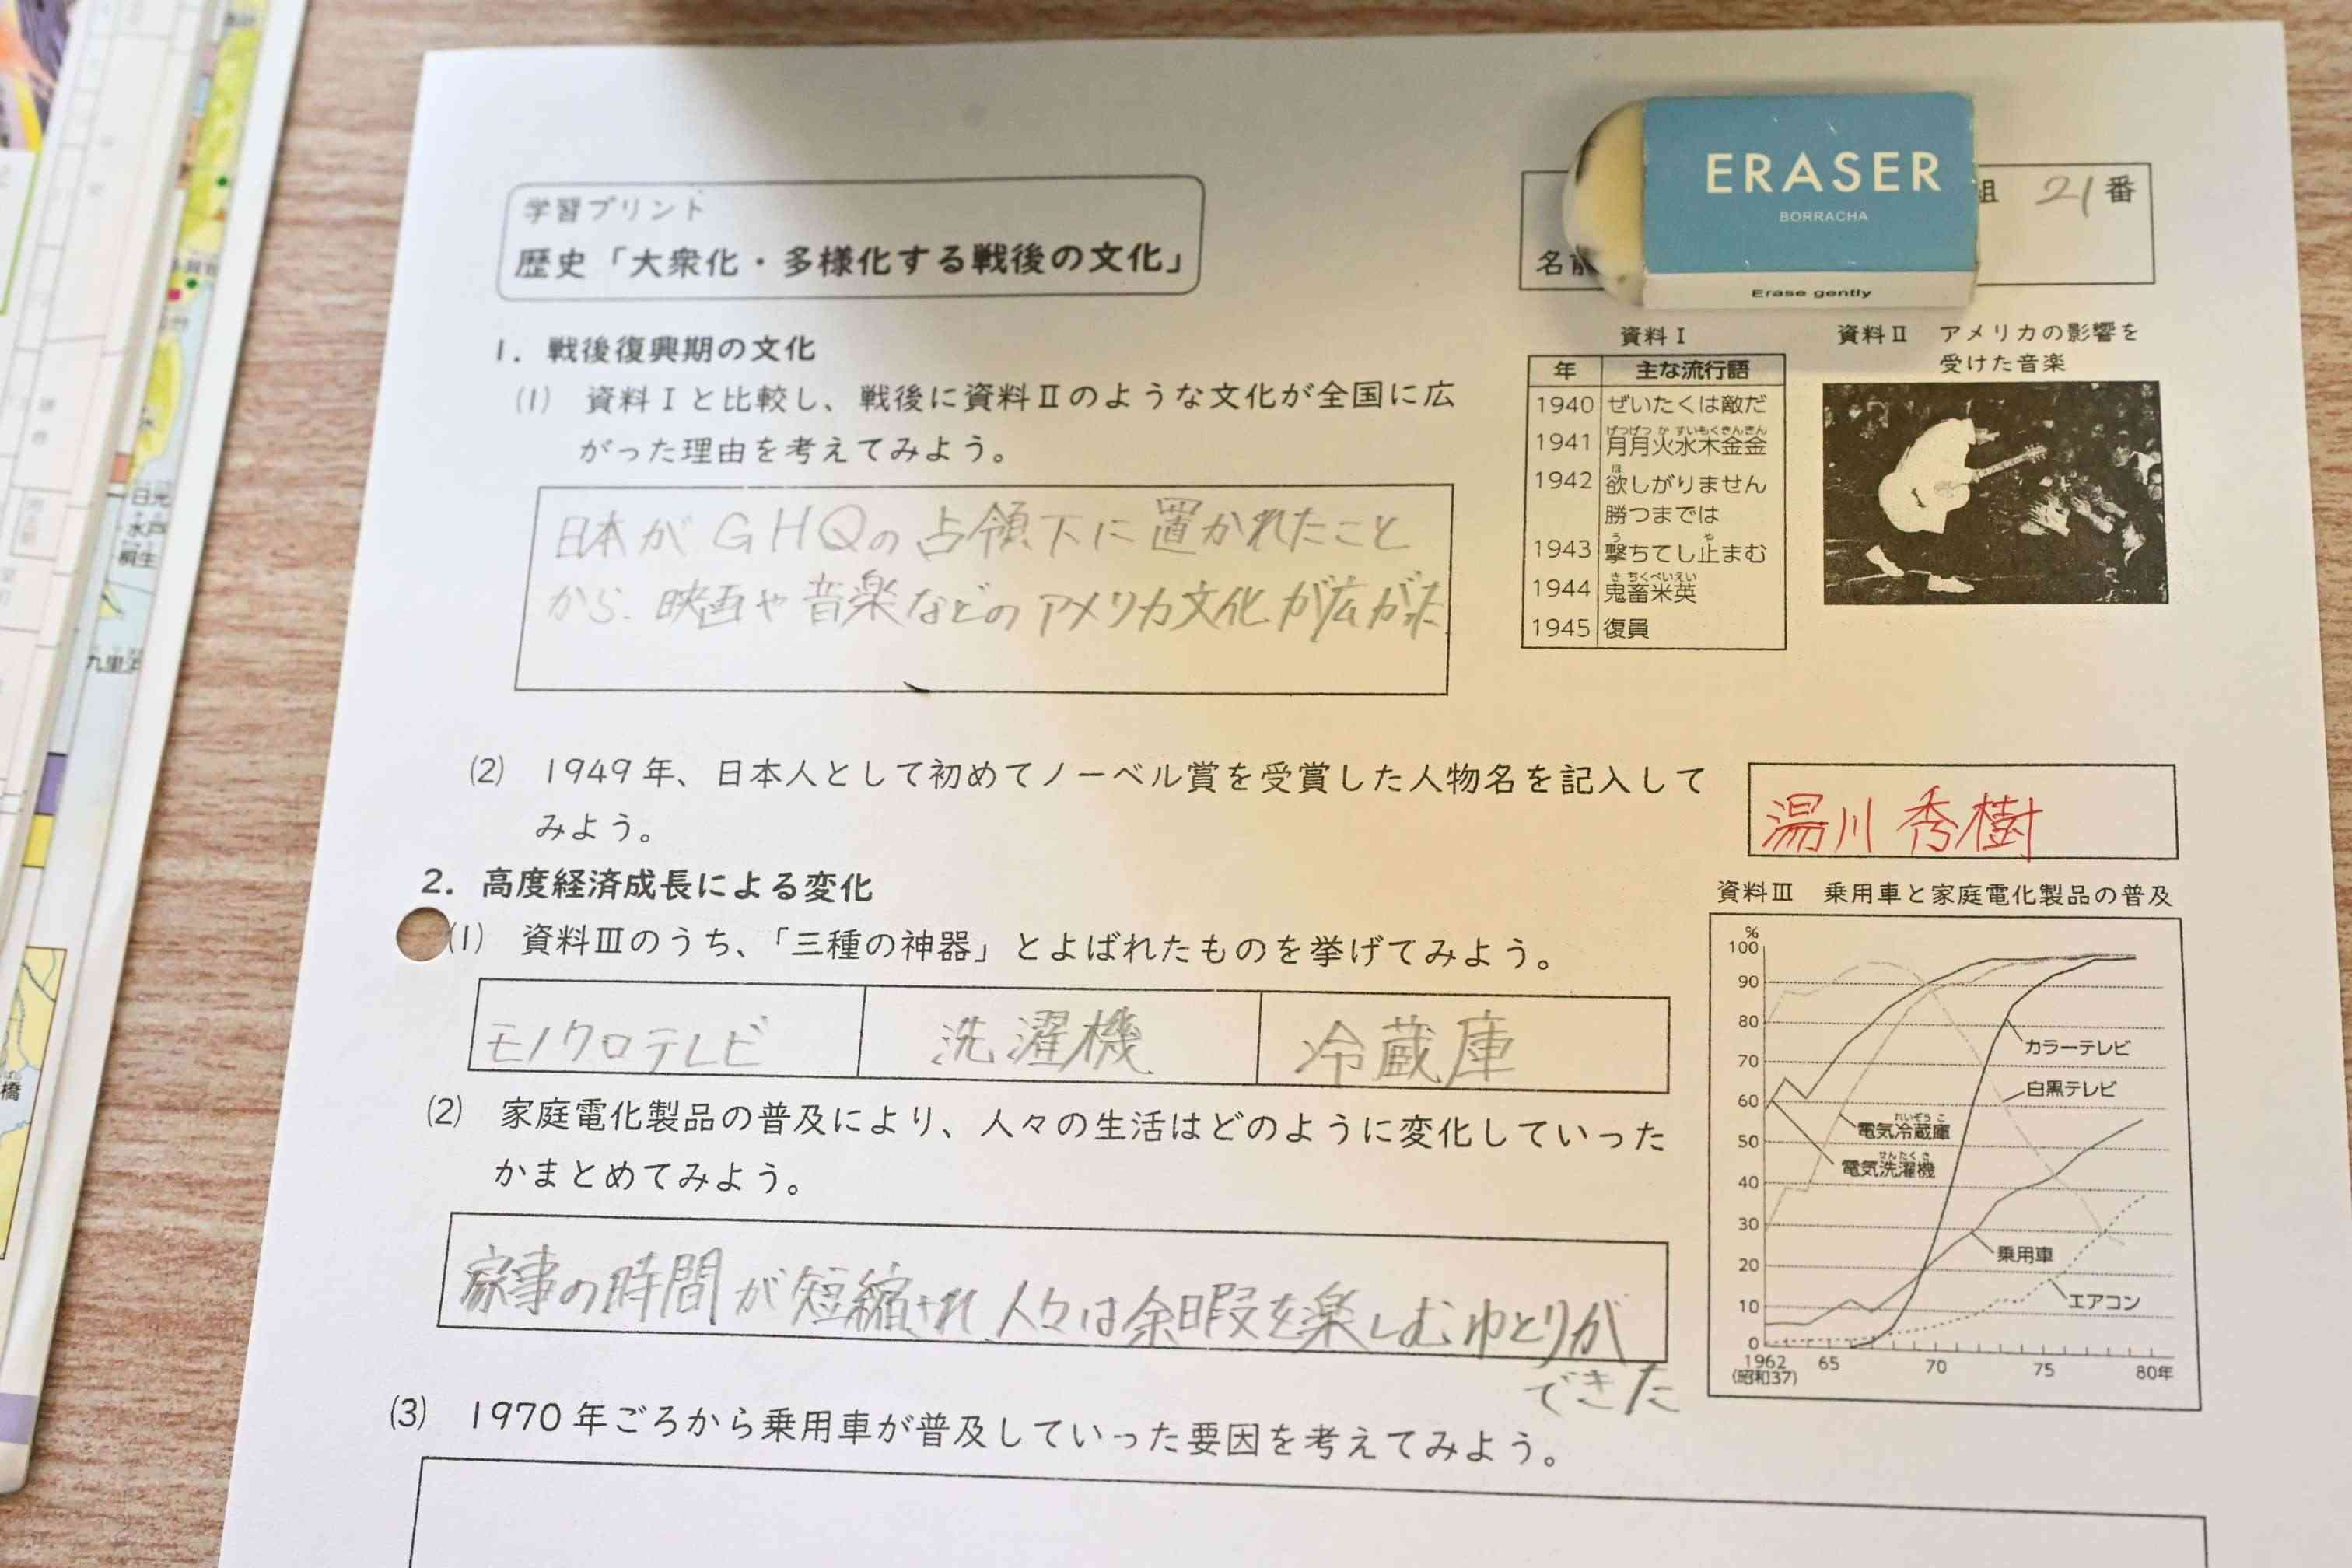 学習プリント
歴史「大衆化・多様化する戦後の文化」
ERASER
BORRACHA
Erase gently
組 21番
名前
1. 戦後復興期の文化
(1) 資料Ⅰと比較し、戦後に資料Ⅱのような文化が全国に広
がった理由を考えてみよう。
日本がGHQの占領下に置かれたこと
から、映画や音楽などのアメリカ文化が広がった
資料Ⅰ
年 主な流行語
1940 ぜいたくは敵だ
げつげつ か すいもくきんきん
1941 月月火水木金金
ほ
1942 欲しがりません
勝つまでは
う や
1943 撃ちてし止まむ
き ちくべいえい
1944 鬼畜米英
1945 復員
資料Ⅱ アメリカの影響を
受けた音楽
(2) 1949年、日本人として初めてノーベル賞を受賞した人物名を記入して
みよう。
湯川 秀樹
2. 高度経済成長による変化
(1) 資料Ⅲのうち、「三種の神器」とよばれたものを挙げてみよう。
モノクロテレビ 洗濯機 冷蔵庫
(2) 家庭電化製品の普及により、人々の生活はどのように変化していった
かまとめてみよう。
家事の時間が短縮され、人々は余暇を楽しむゆとりが
できた
資料Ⅲ 乗用車と家庭電化製品の普及
%
100
90
80
70
60
50
40
30
20
10
0
カラーテレビ
白黒テレビ
れいぞうこ
電気冷蔵庫
せんたくき
電気洗濯機
乗用車
エアコン
1962 65 70 75 80年
(昭和37)
(3) 1970年ごろから乗用車が普及していった要因を考えてみよう。
日光
水戸
桐生
九里
橋